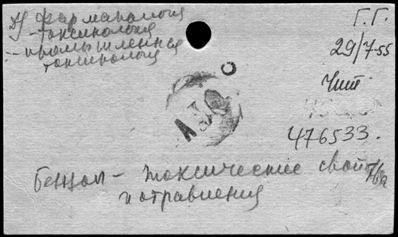 Фармакология
- токсикология
- промышленная
токсикология
Г.Г.
29/7-55
Чит
476533.
Бензол - токсические свой-
и отравления